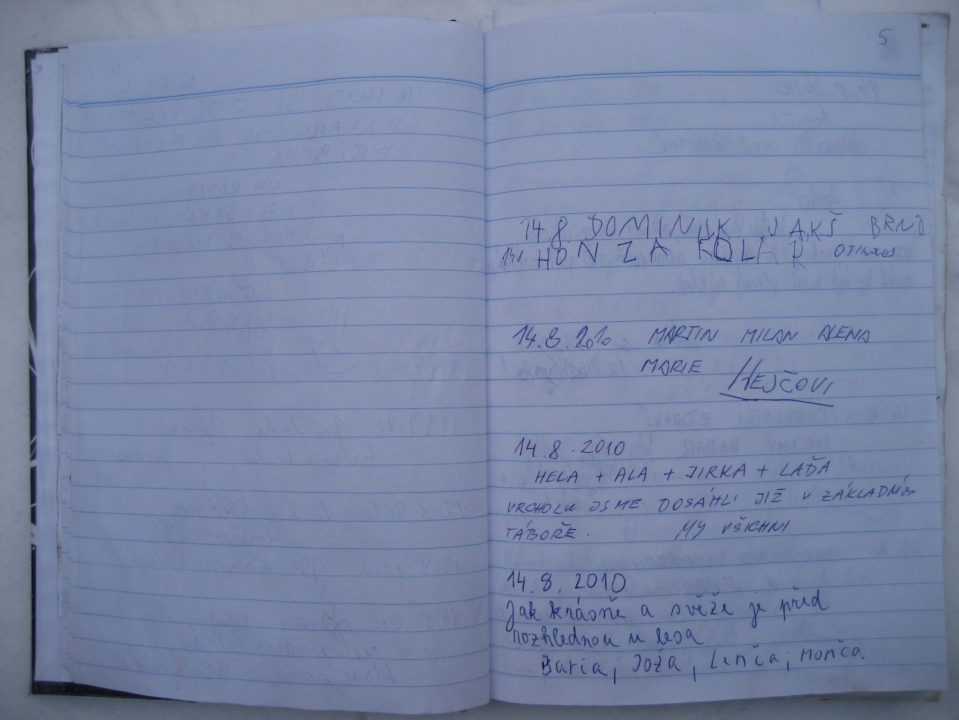 5
14.8 DOMINIK JAKŠ BRNO
14.8 HONZA KOLAR
14.8.2010 MARTIN MILAN ALENA
MARIE HEJČOVI
14.8.2010
HELA + ALA + JIRKA + LAĎA
VRCHOLU JSME DOSÁHLI JIŽ V ZÁKLADNÍM
TÁBOŘE. MY VŠICHNI
14.8.2010
Jak krásně a svěže je před
rozhlednou u lesa
Joža, Lenča, Monča.